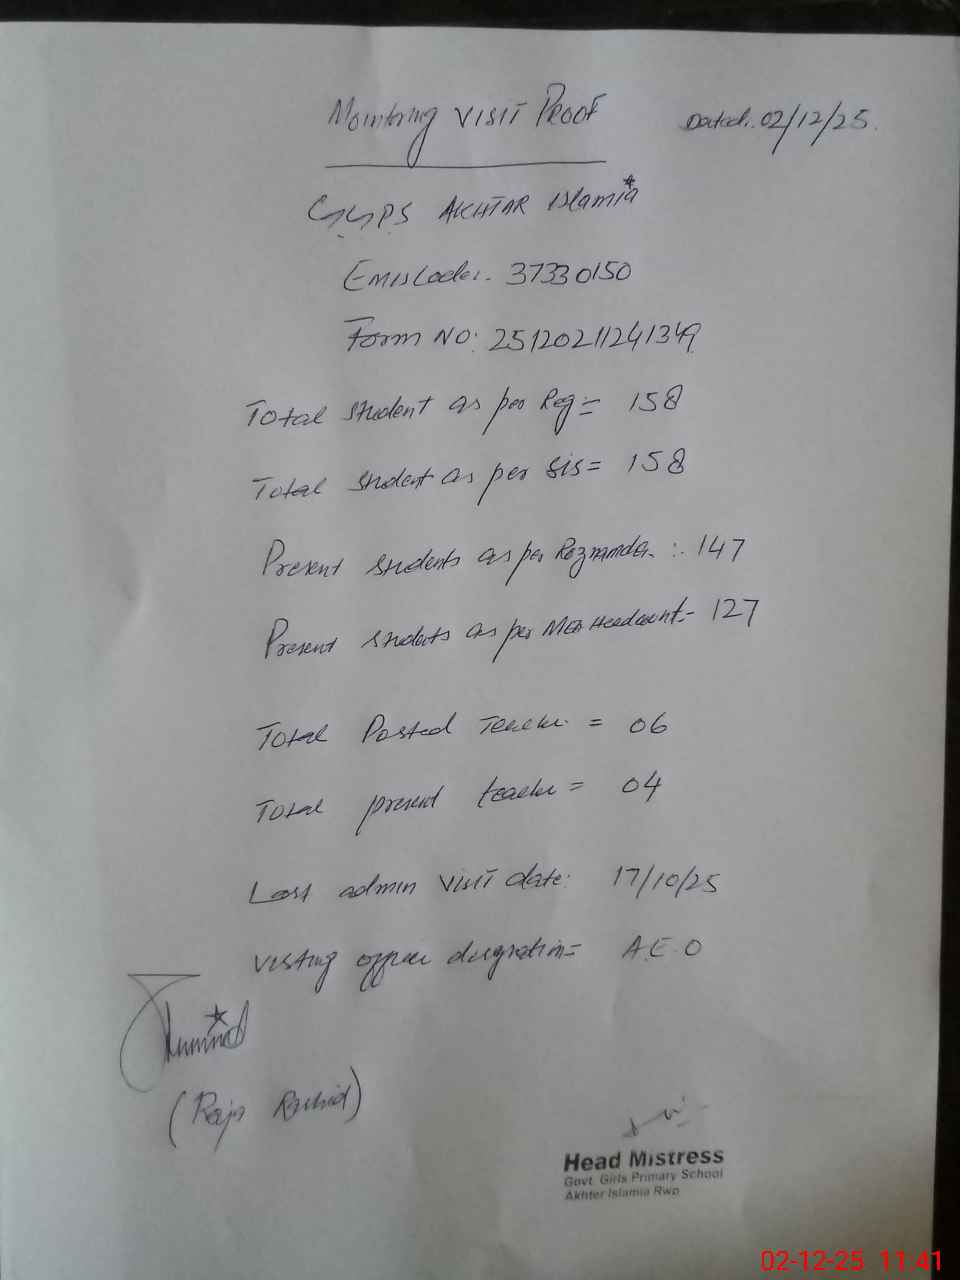 Monitoring Visit Proof
Dated. 02/12/25.
GGPS AKHTAR Islamia
Emis Code:. 37330150
Form NO: 25120211241349
Total student as per Reg:= 158
Total student as per sis= 158
Present students as per Roznamcha. :. 147
Present students as per MEA Headcount:- 127
Total Posted Teacher = 06
Total present teacher = 04
Last admin visit date: 17/10/25
visting officer designation= A.E.O
(Raja Rashid)
Head Mistress
Govt. Girls Primary School
Akhter Islamia Rwp
02-12-25 11:41